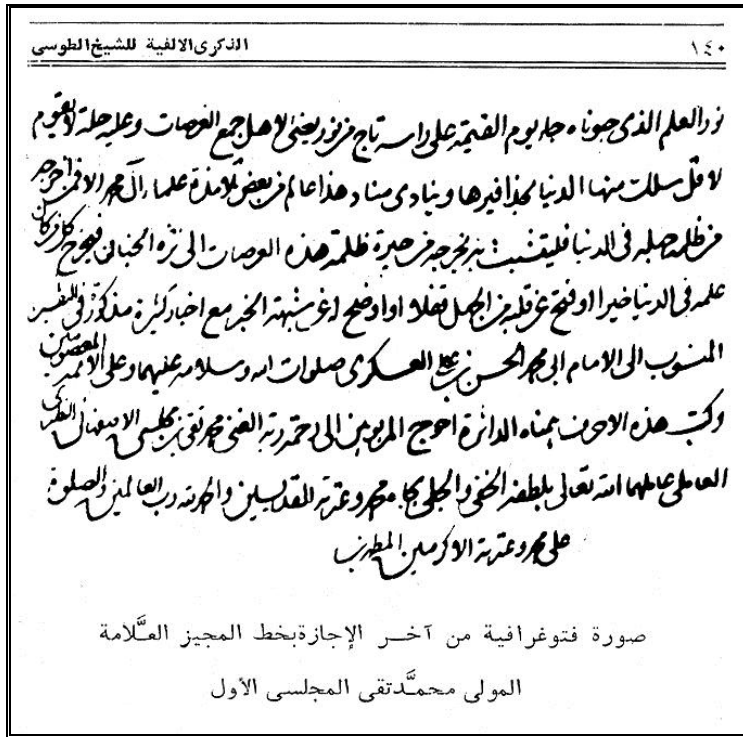 الذكرى الالفية للشيخ الطوسى
١٤٠
نور العلم الذى حبوناه جاء يوم القيمة على راسه تاج من نور يضئ لاهل جميع العرصات وعليه حلة لا يقوم
لاقل سلك منها الدنيا بحذافيرها وينادى مناد هذا عالم من بعض تلامذة علماء آل محمد الا فمن اخرجه
من ظلمة جهله فى الدنيا فليتشبث به يخرجه من حيرة ظلمة هذه العرصات الى نزه الجنان فيخرج كل من كان
علمه فى الدنيا خيرا او فتح عن قلبه من الجهل قفلا او اوضح له عن شبهة الخبر مع اخبار كثيرة مذكورة فى التفسير
المنسوب الى الامام ابى محمد الحسن بن على العسكرى صلوات الله وسلامه عليهما وعلى الائمة المعصومين
وكتب هذه الاحرف بيمناه الداثرة احوج المربوبين الى رحمة ربه الغنى محمد تقى بن مجلسى الاصفهانى النطنزى
العاملى عاملهما الله تعالى بلطفه الخفى والجلى بجاه محمد وعترته المقدسين والحمد لله رب العالمين والصلوة
على محمد وعترته الاكرمين المطهرين
صورة فتوغرافية من آخـر الإجازة بخط المجيز العلَّامة
المولى محمَّد تقى المجلسى الأول